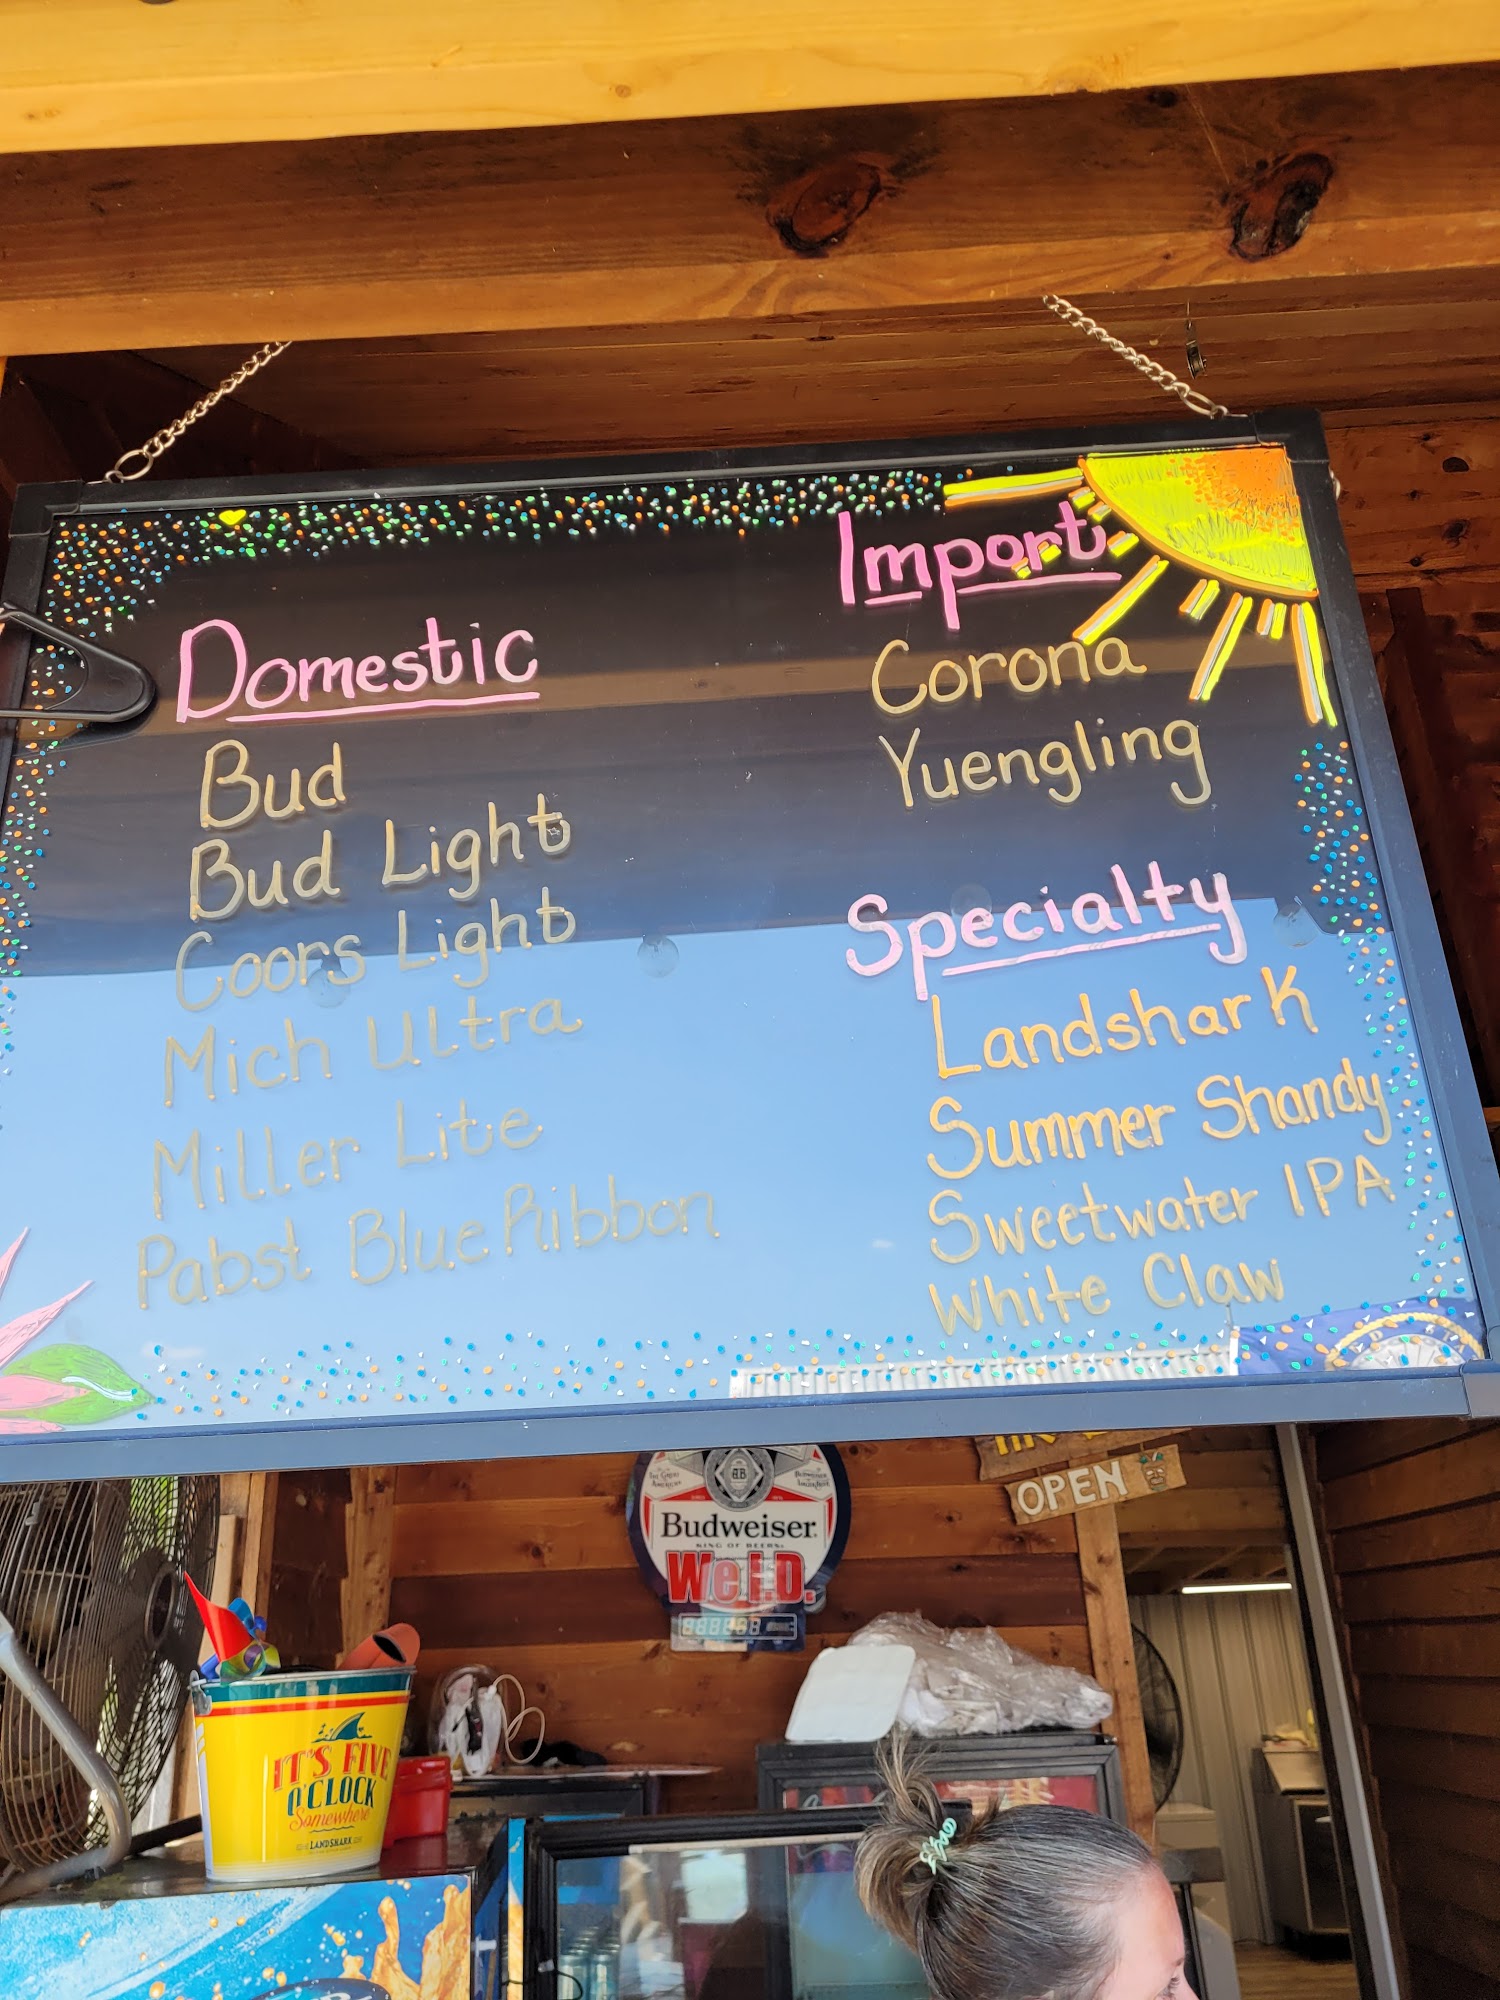 Domestic
Bud
Bud Light
Coors Light
Mich Ultra
Miller Lite
Pabst Blue Ribbon
Import
Corona
Yuengling
Specialty
Landshark
Summer Shandy
Sweetwater IPA
White Claw
OPEN
Budweiser
KING OF BEERS
We I.D.
IT'S FIVE
O'CLOCK
Somewhere
LANDSHARK